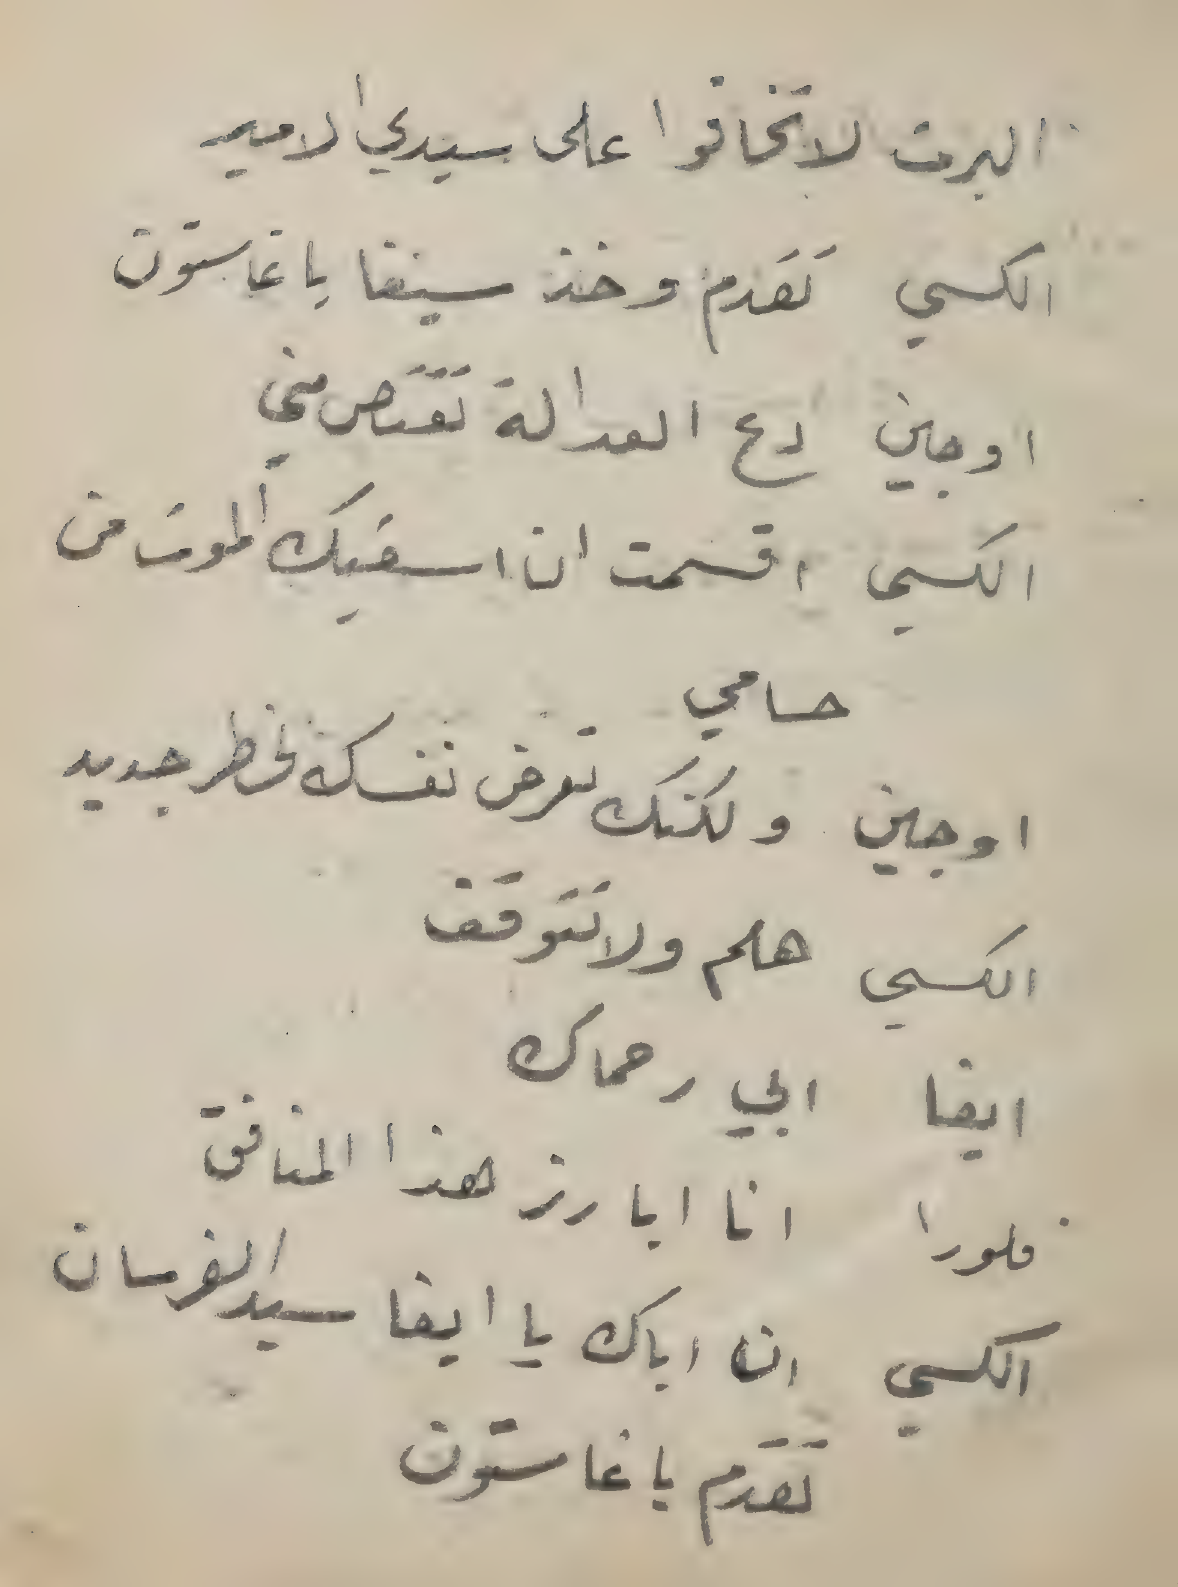 البرت لا تخافوا على سيدي الامير
الكسي تقدم وخذ سيفا يا غاستون
اوجين دع العدالة تقتص مني
الكسي اقسمت ان اسقيك الموت من
حسامي
اوجين ولكنك تعرض نفسك لخطر جديد
الكسي هلم ولا تتوقف
ايفا ابي رحماك
فلورا انا ابارز هذا المنافق
الكسي ان اباك يا ايفا سيد الفرسان
تقدم يا غاستون